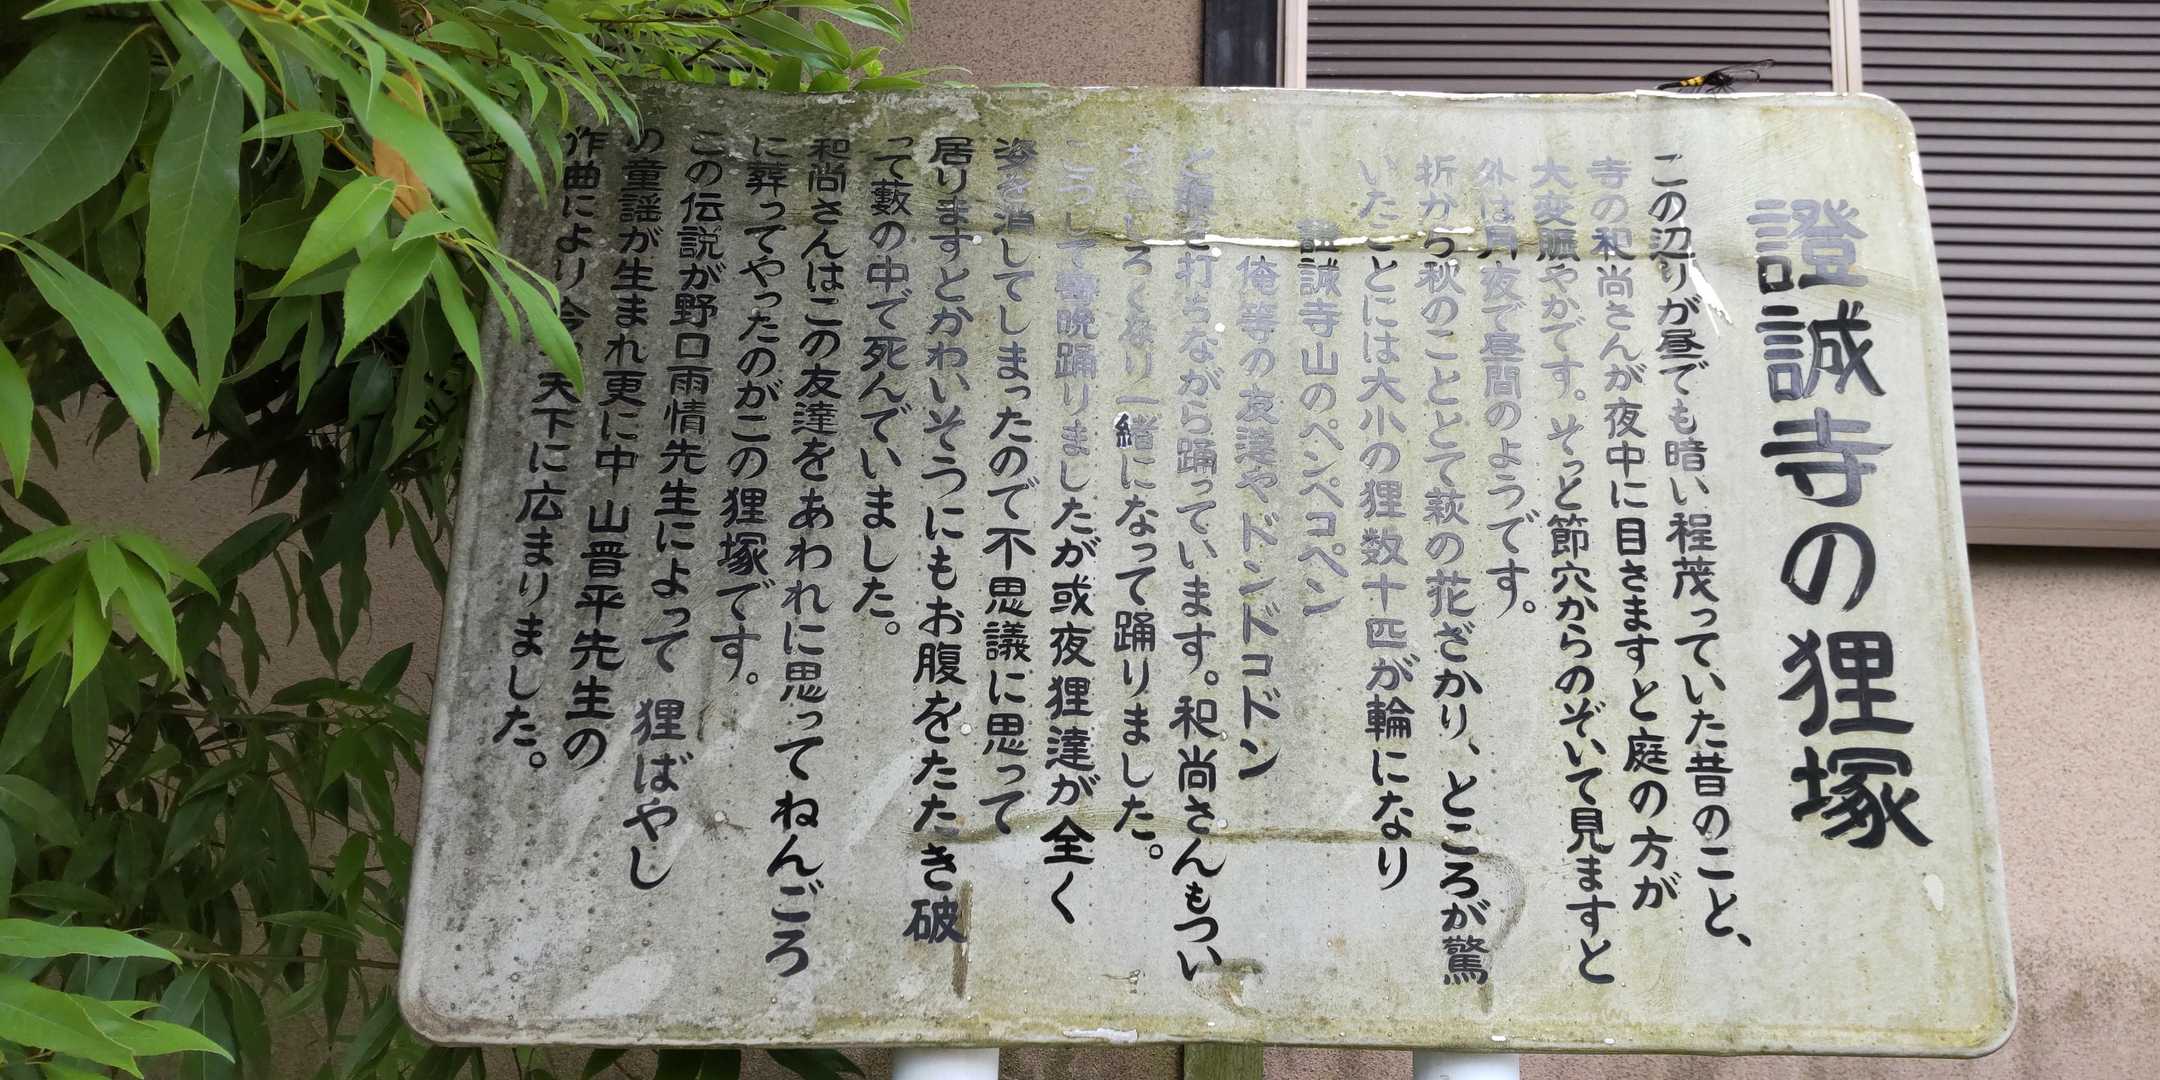 證誠寺の狸塚
この辺りが昼でも暗い程茂っていた昔のこと、
寺の和尚さんが夜中に目さますと庭の方が
大変賑やかです。そっと節穴からのぞいて見ますと
外は月夜で昼間のようです。
折から秋のこととて萩の花ざかり、ところが驚
いたことには大小の狸数十匹が輪になり
證誠寺山のペンペコペン
俺等の友達やドンドコドン
と腹を打ちながら踊っています。和尚さんもつい
おもしろくなり一緒になって踊りました。
こうして毎晩踊りましたが或夜狸達が全く
姿を消してしまったので不思議に思って
居りますとかわいそうにもお腹をたたき破
って藪の中で死んでいました。
和尚さんはこの友達をあわれに思ってねんごろ
に葬ってやったのがこの狸塚です。
この伝説が野口雨情先生によって 狸ばやし
の童謡が生まれ更に中山晋平先生の
作曲により今 天下に広まりました。